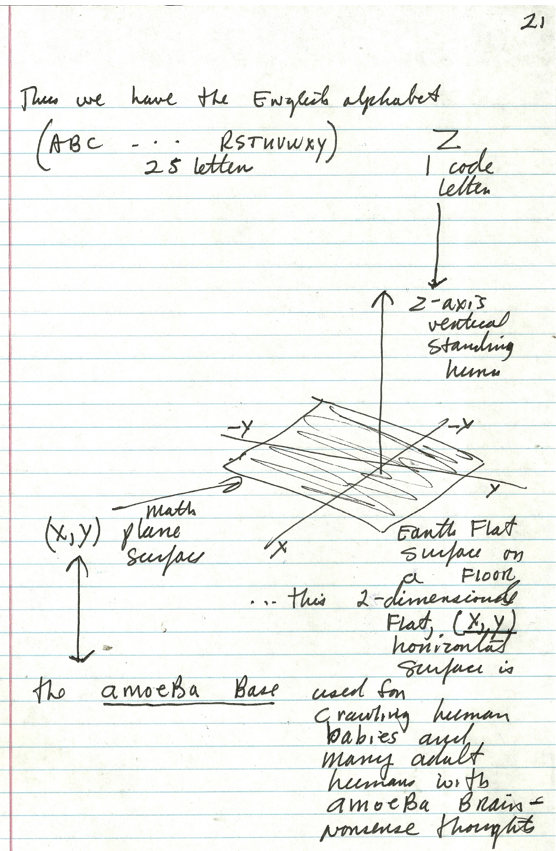 21
Thus we have the English alphabet
(ABC ... RSTUVWXY)
25 letters
Z
1 code
letter
Z-axis
vertical
standing
human
-Y
-X
Y
X
math
plane
surface
(X,Y)
Earth Flat
Surface on
a FLOOR
... this 2-dimensional
Flat, (X,Y)
horizontal
surface is
the amoeBa Base used for
crawling human
babies and
many adult
humans with
amoeBa Brain-
nonsense thoughts